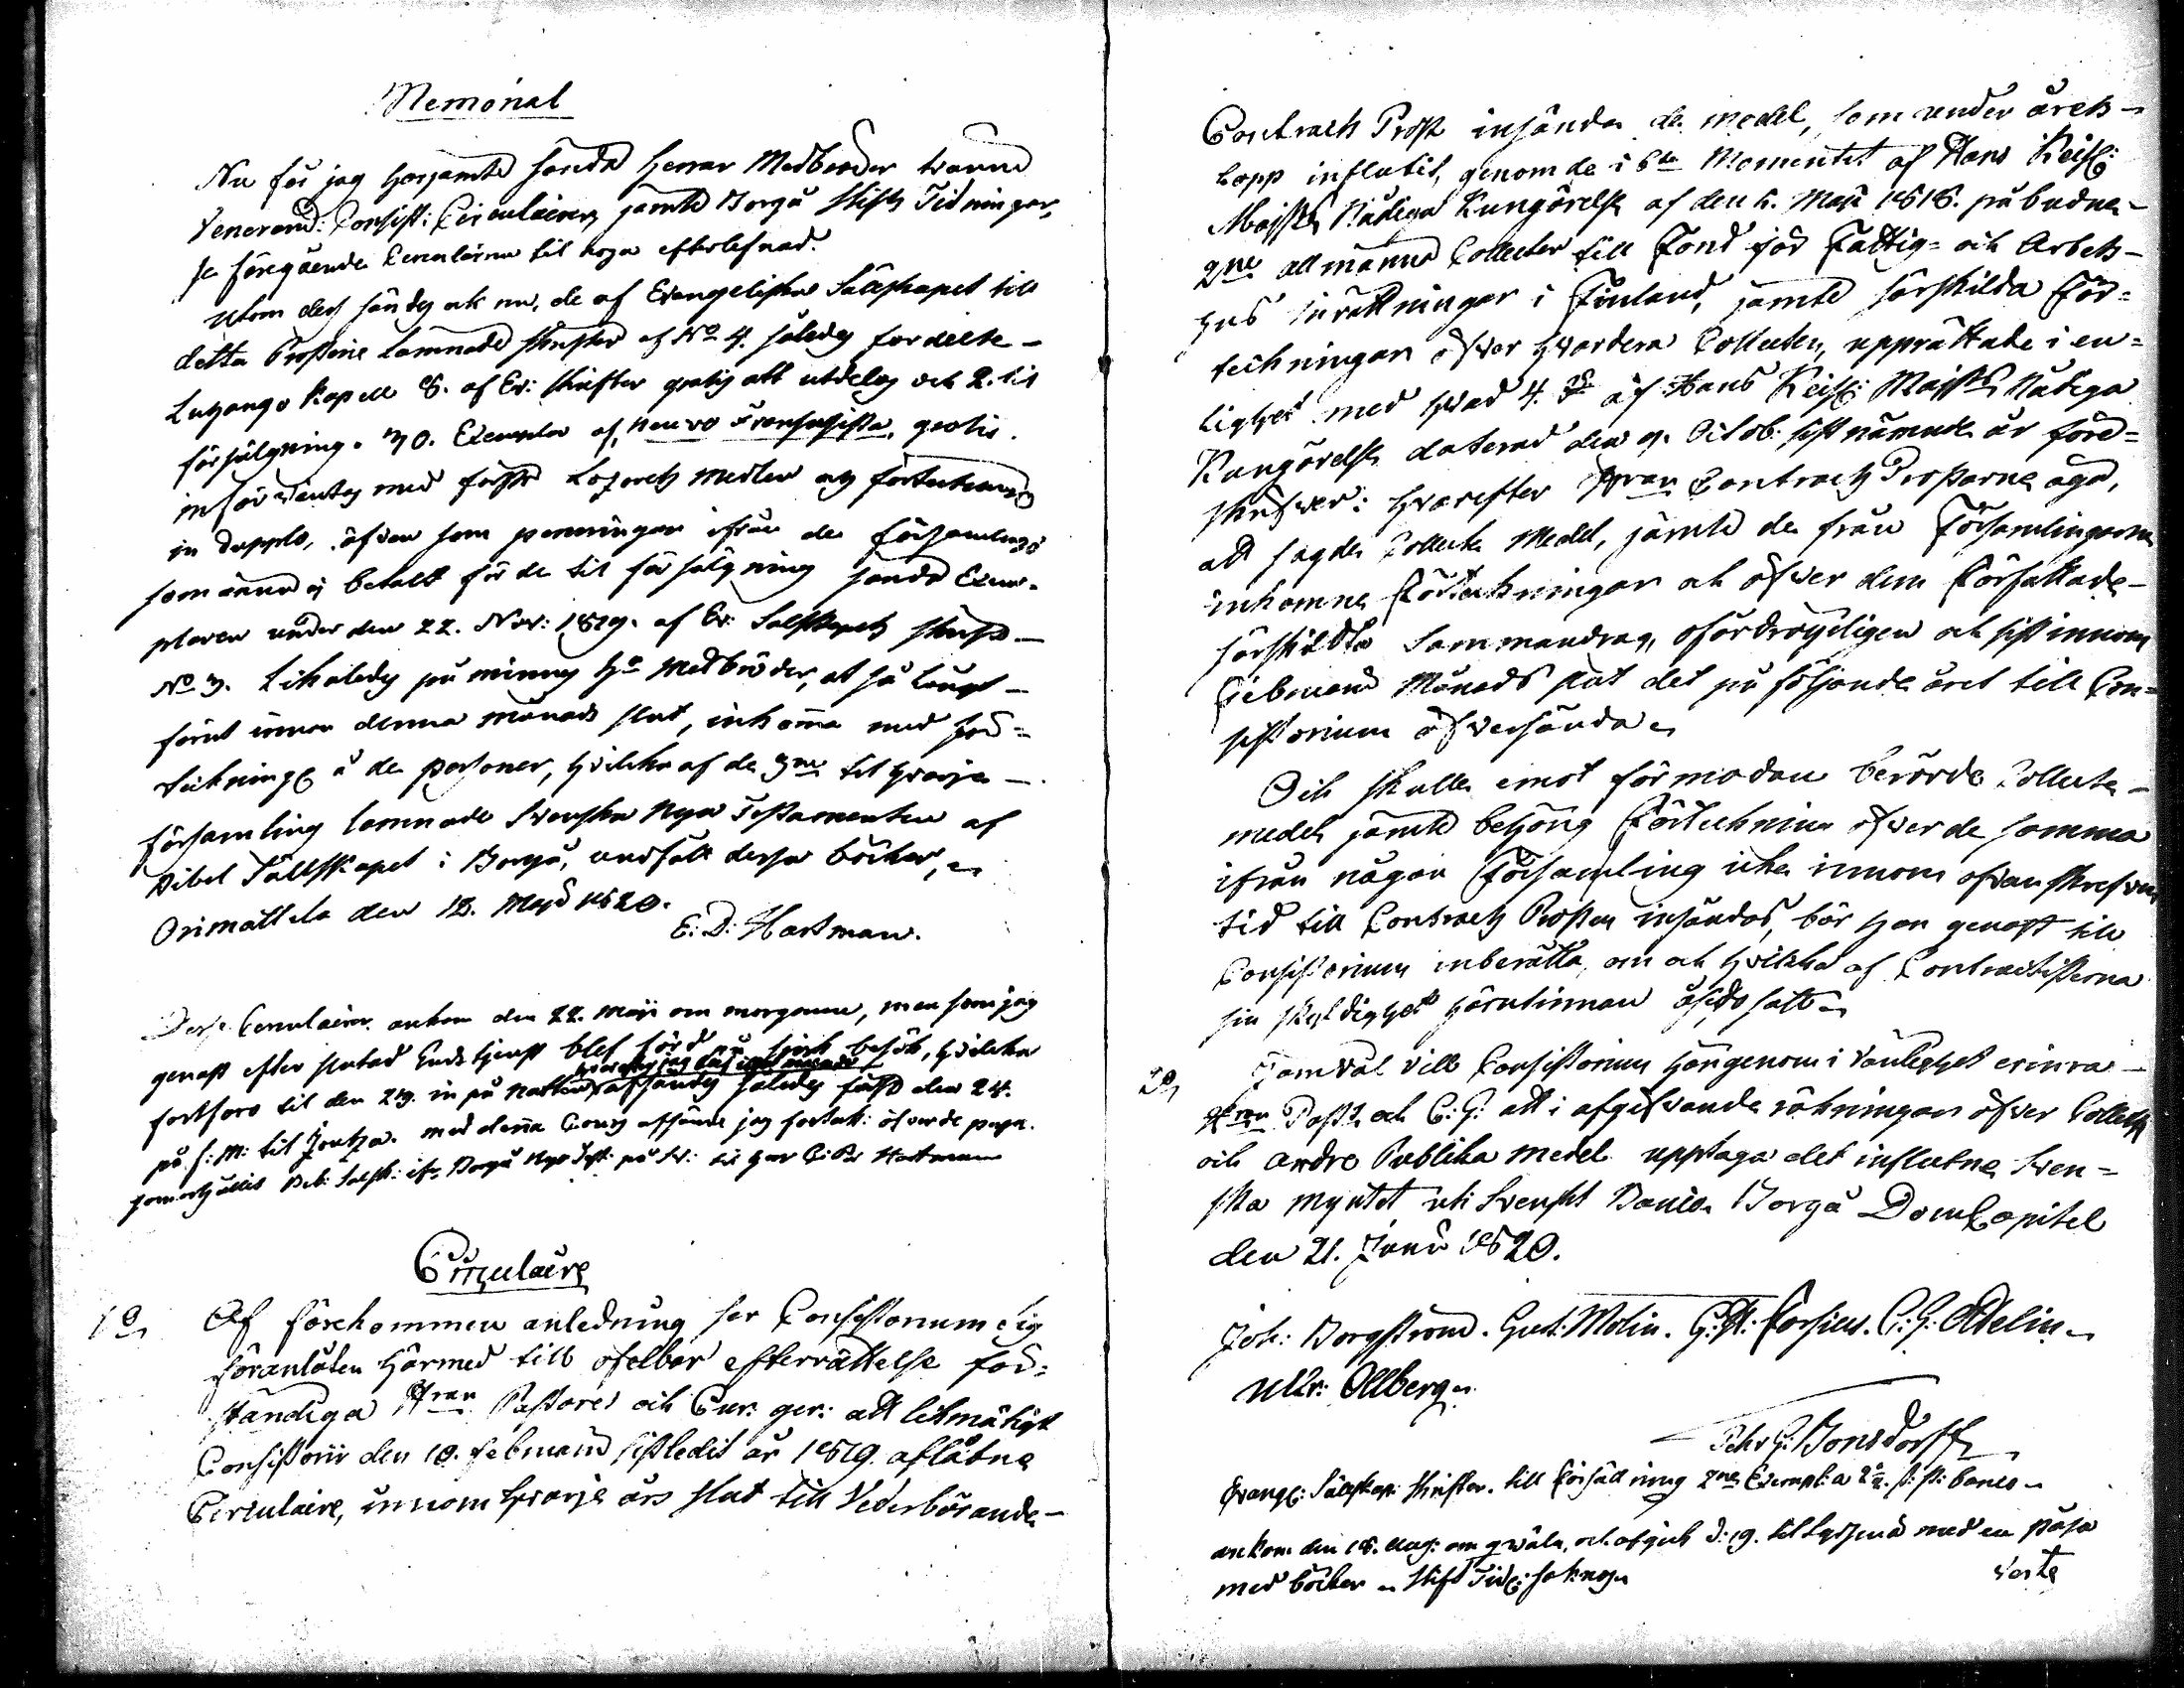 Memorial
Nu får jag härjamte sända Herrar Medbröder tränne
Venerand: Consist: Circulairer, jämte Borgå Stifts Tidningar,
se föregående Circulairen til noga efterlefnad.
utom dess sändes ock nu, de af Evangeliska Sälskapet till
detta Prosteri lämnade skrifter af No 4. således fördelte –
Kapell 8. af Ev: skrifter gratis att utdelas och 2. til
försäljning. 30. Exemplar af gratis.
införväntas med första Lazarets medlen och förteckning
in duplo, äfven som penningar ifrån de församlingar
som ännu ej betalt för de til försäljning sända Exem-
plaren under den 22. Nov: 1819. af Ev: Sälskapets skrift –
No 3. Likaledes påminnes Hr Medbröder, at så långt –
förut innan denna månads slut, inkomma med för=
tekning å de personer, hvilka af de til hvarje –
församling lämnade Svenska Nya Testamenten af
Bibel Sällskapet i Borgå, undfått dessa böcker,
Orimattila den 18. Maji 1820.
E: D: Hartman.
Desse Circulairer ankom den 22. Maji om morgonen, men som jag
genast efter slutad Gudstjenst blef förd på sjuk besök, hvilka
fortforo til den 23. in på natten, afsändes således först den 24.
på f: M: til Jentza. med denna Couvs afsände jag förtek: öfver de
Bib: Sälsk: i Borgå Nya Test: på Sv: til Herr C: Pr Hartman
Circulaire
1o, Af förekommen anledning har Consistorium sig
föranlåten härmed till ofelbar efterrättelse för=
ständiga Hrar Pastorer och Cur: ger: att likmätigt
Consistorii den 10. Februarii sistledit år 1819. aflåtne
Circulaire, innom hvarje års slut till Vederbörande –
Contracts Prost insända de medel, som under årets –
lopp influtit, genom de i 6te Momentet af Hans Keisl:
Maijsts Nådiga Kungörelse af den 5. Maji 1818. påbudne –
2ne allmänna Collecter till Fond för Fattig= och Arbets –
hus inrättningar i Finland, jämte särskilda För=
teckningar öfver hvardera Collecten, upprättade i en=
lighet med hvad 4. § af Hans Keisl: Maijsts Nådiga
Kungörelse daterad den 9. Octob: sistnämnde år före=
skrifver: hvarefter Hrar Contracts Prostarne äga,
att sagde Collecte Medel, jämte de från Församlingarne
inkomne Förteckningar och öfver dem Författade –
särskildta Sammandrag, ofördröjeligen och sist innom
Februarii Månads slut det på följande året till Con=
sistorium öfversända.
Och skulle emot förmodan berörde Collecte –
medel jämte behörig Förteckning öfver de samma
ifrån någon Församling icke innom ofvanskrefven
tid till Contracts Prosten insändas, bör han genast till
Consistorium inberätta, om och hvilka af Contractisterna
sin skyldighet härutinnan åsidosatt.
2o, Jämväl vill Consistorium härigenom i vänlighet erinra –
Hrar Past: och C: G: att i afgifvande räkningar öfver Collect
och andre Publika medel upptaga det influtne Sven=
ska myntet uti Svenskt Banco. Borgå DomCapitel
den 21. Junii 1820.
Joh: Borgström. Gust: Molin. G: A: Forsius. C: G: Adelin.
Ulr: Ollberg.
Pehr G: Bonsdorff
Evangel: Sälskap: skrifter. till Försäljning 2ne Exempl: a 2 s: s: banco.
ankom den 18. Aug: om qväln, och afgick d: 19. til med en påsa
med böcker. Stift Tid:
Verte